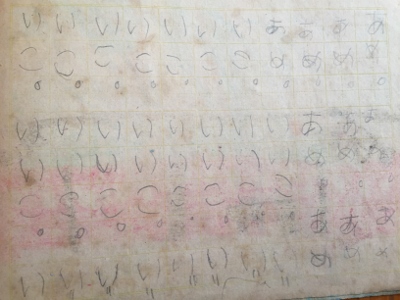 あめ。あめ。あめ
あめ。あめ。あめ
あめ。あめ。あめ
あめ。いいこ。い
いこ。いいこ。い
いこ。いいこ。い
いこ。いいこ。い
いこ。いいこ。い
いこ。いいこ。い
いこ。いいこ。い
いこ。いいこ。い